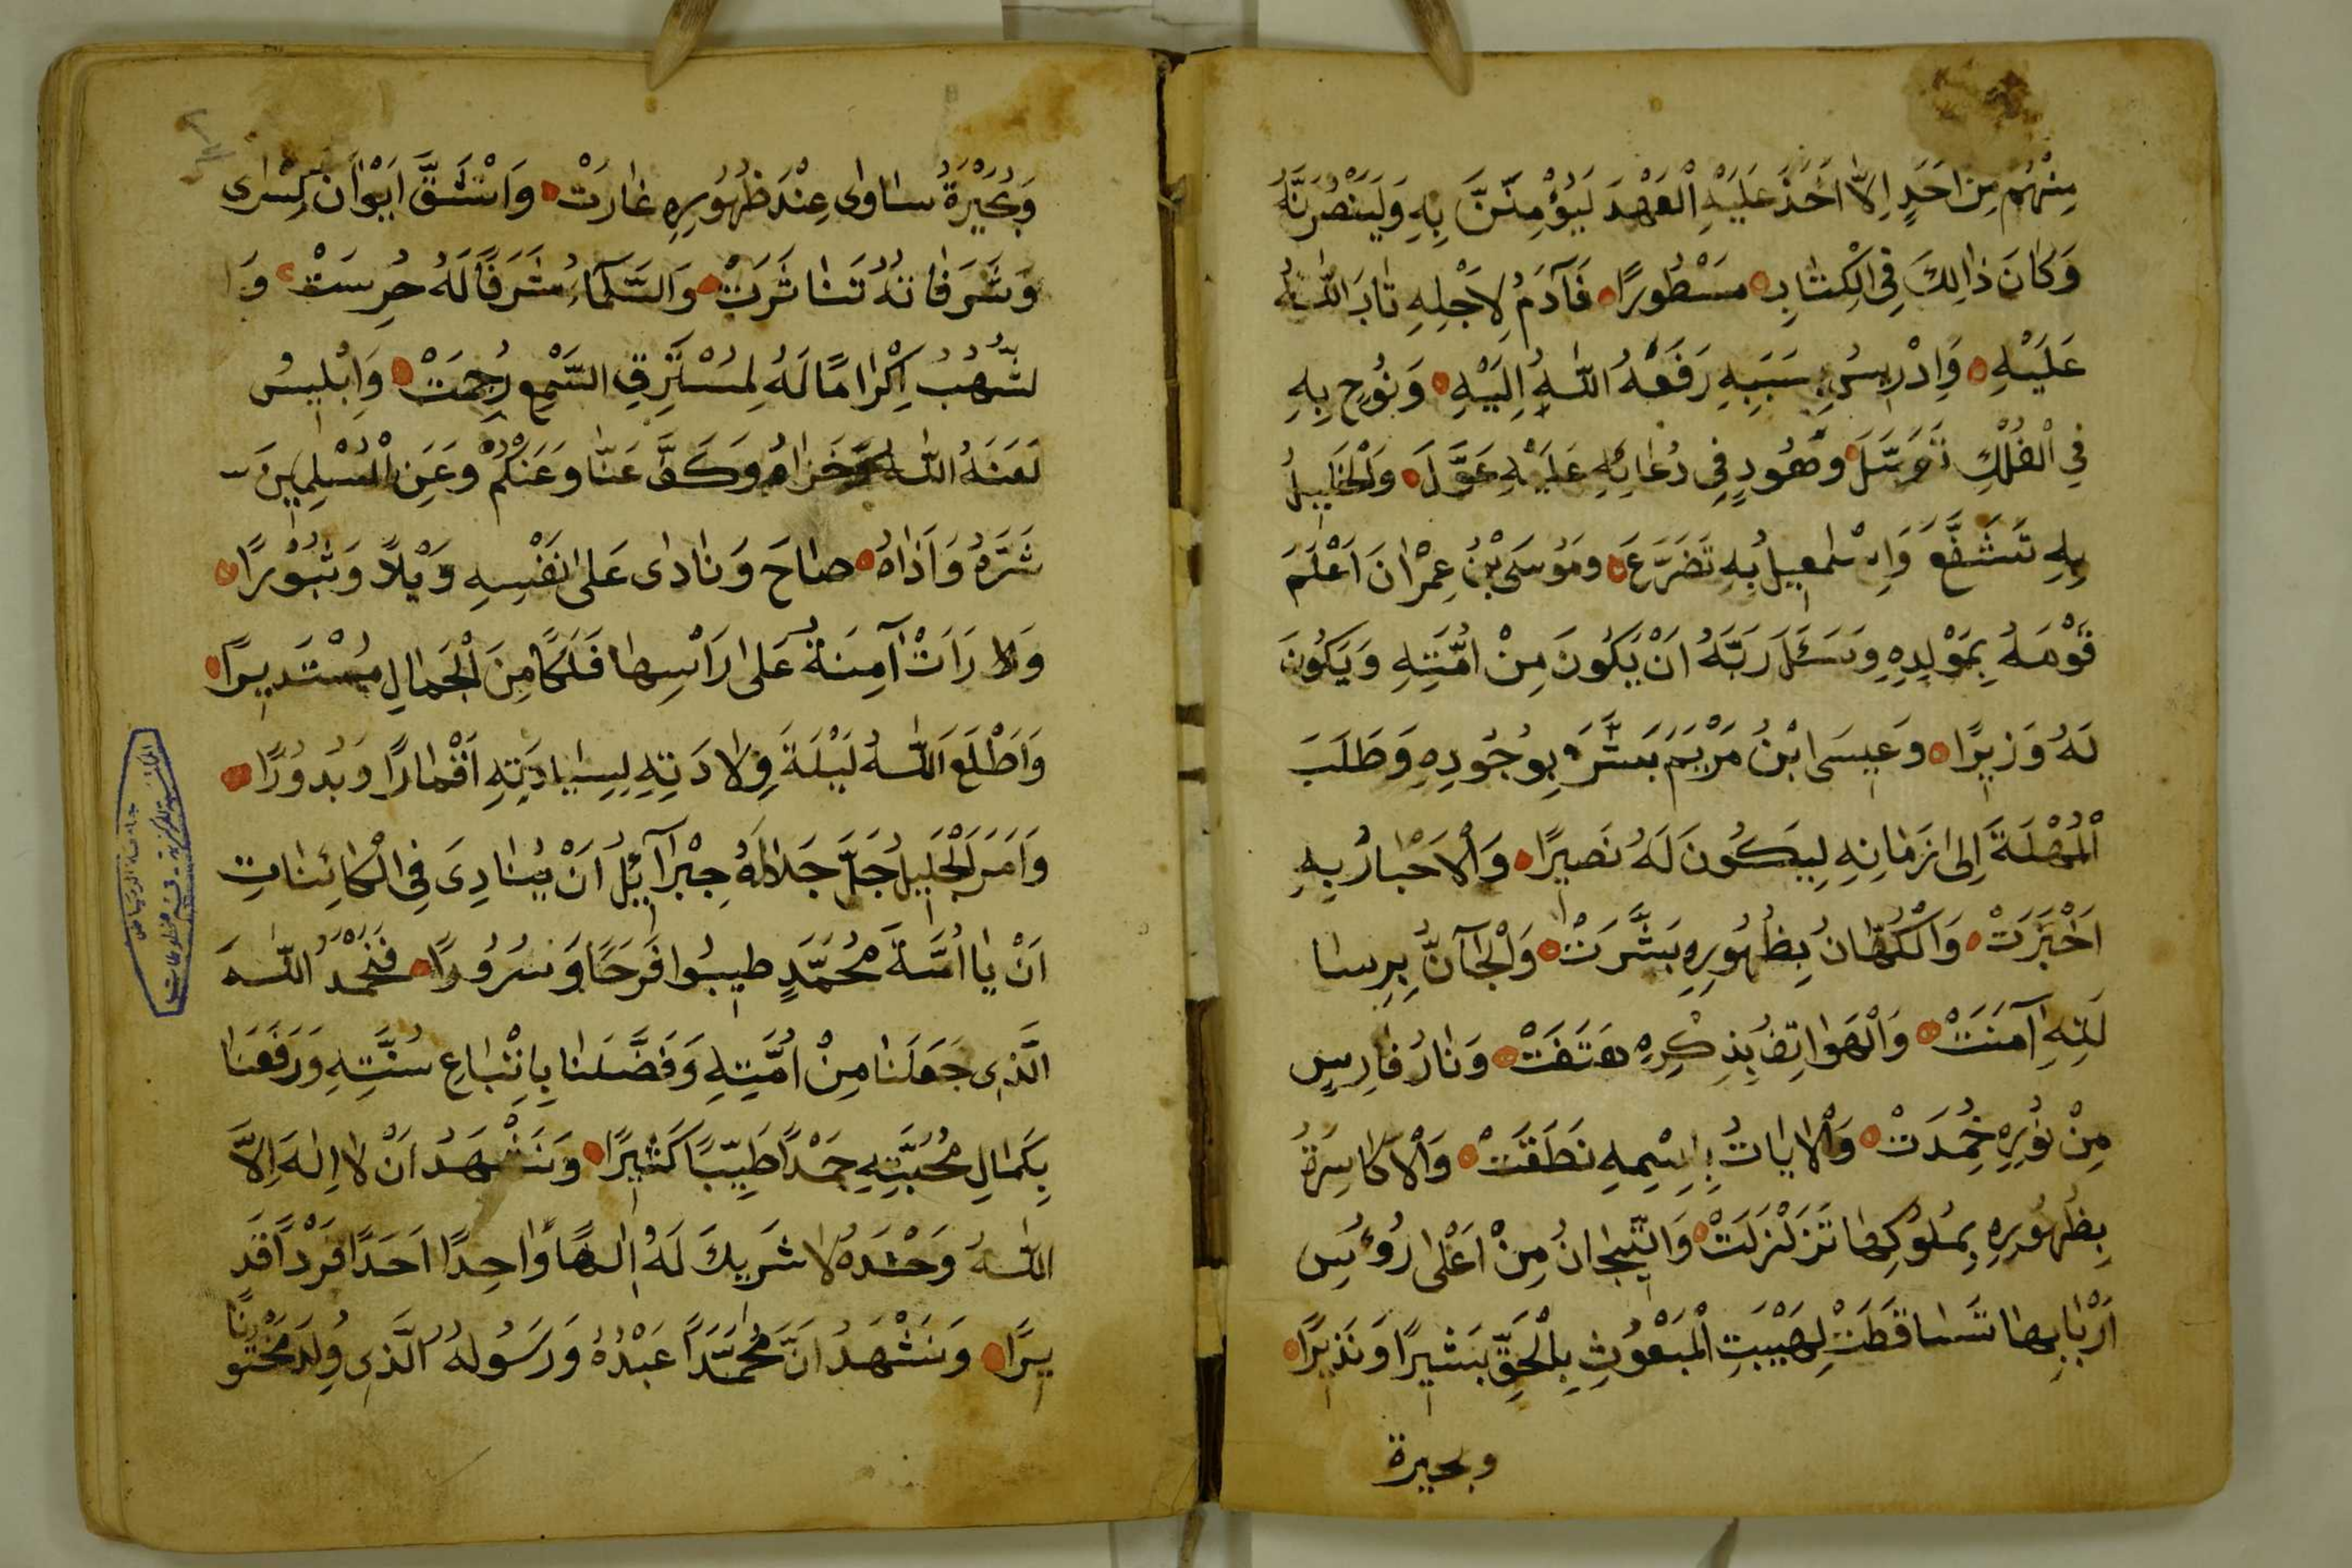 مِنْهُم مِنْ اَحَدٍ اِلاَّ اَخَذَ عَلَيْهِ الْعَهْدَ لَيُؤْمِنَنَّ بِهِ وَلَيَنْصُرَنَّهُ
وَكَانَ ذَالِكَ فِى الْكِتَابِ مَسْطُورًا فَآدَمُ لِاَجْلِهِ تَابَ اللّٰهُ
عَلَيْهِ وَاِدْرِيسُ بِسَبَبِهِ رَفَعَهُ اللّٰهُ اِلَيْهِ وَنُوحٍ بِهِ
فِي الْفُلْكِ تَوَسَّلَ وَهُودٍ فِى دُعَائِهِ عَلَيْهِ عَوَّلَ وَالْخَلِيلُ
بِهِ تَشَفَّعَ وَاِسْمٰعِيلُ بِهِ تَضَرَّعَ وَمُوسَى بْنُ عِمْرَانَ اَعْلَمَ
قَوْمَهُ بِمَوْلِدِهِ وَسَئَلَ رَبَّهُ اَنْ يَكُونَ مِنْ اُمَّتِهِ وَيَكُونَ
لَهُ وَزِيرًا وَعِيسَى ابْنُ مَرْيَمَ بَشَّرَ بِوُجُودِهِ وَطَلَبَ
الْمُهْلَةَ اِلَى زَمَانِهِ لِيَكُونَ لَهُ نَصِيرًا وَالْاَحْبَارُ بِهِ
اَخْبَرَتْ وَالْكُهَّانُ بِظُهُورِهِ بَشَّرَتْ وَالْجَآنُّ بِرِسَا
لَتِهِ آمَنَتْ وَالْهَوَاتِفُ بِذِكْرِهِ هَتَفَتْ وَنَارُ فَارِسٍ
مِنْ نُورِهِ خُمِدَتْ وَالْاٰيَاتُ بِاِسْمِهِ نَطَقَتْ وَالْاَكَاسِرَةُ
بِظُهُورِهِ بِمُلُوكِهَا تَزَلْزَلَتْ وَالتِّيجَانُ مِنْ اَعْلَى رُؤُسِ
اَرْبَابِهَا تَسَاقَطَتْ لِهَيْبَتِ الْمَبْعُوثِ بِالْحَقِّ بَشِيرًا وَنَذِيرًا
وبحيرة
وَبُحَيْرَةُ سَاوٰى عِنْدَ ظُهُورِهِ غَارَتْ وَانْشَقَّ اَيْوَانُ كِسْرٰى
وَشَرَفَاتُهُ تَنَاثَرَتْ وَالسَّمَآءُ شَرَفًا لَهُ حُرِسَتْ وَا
لشُّهُبُ اِكْرَامًا لَهُ لِمُسْتَرِقِ السَّمْعِ رُجِمَتْ وَاِبْلِيسُ
لَعَنَهُ اللّٰهُ وَكَفَّ عَنَّا وَعَنْكُمْ وَعَنِ الْمُسْلِمِينَ
شَرَّهُ وَاَذَاهُ صَاحَ وَنَادٰى عَلَى نَفْسِهِ وَيْلاً وَثُبُورًا
وَلَا رَاَتْ آمِنَةُ عَلَى رَاْسِهَا فَلَكًا مِنَ الْجَمَالِ مُسْتَدِيرًا
وَاَطْلَعَ اللّٰهُ لَيْلَةَ وِلَادَتِهِ لِسِيَادَتِهِ اَقْمَارًا وَبُدُورًا
وَاَمَرَ الْجَلِيلُ جَلَّ جَلَالُهُ جِبْرَآئِيلُ اَنْ يُنَادِىَ فِى الْكَائِنَاتِ
اَنْ يَا اُمَّةَ مُحَمَّدٍ طِيبُوا فَرَحًا وَسُرُورًا فَنَحْمَدُ اللّٰهَ
الَّذِى جَعَلَنَا مِنْ اُمَّتِهِ وَفَضَّلَنَا بِاِتْبَاعِ سُنَّتِهِ وَرَفَعَنَا
بِكَمَالِ مُحَبَّتِهِ حَمْدًا طَيِّبًا كَثِيرًا وَنَشْهَدُ اَنْ لَا اِلٰهَ اِلاَّ
اللّٰهُ وَحْدَهُ لَا شَرِيكَ لَهُ اِلٰهًا وَاحِدًا اَحَدًا فَرْدًا قَدِ
يرًا وَنَشْهَدُ اَنَّ مُحَمَّدًا عَبْدُهُ وَرَسُولُهُ الَّذِى وُلِدَ مَخْتُو
نًا
جامعة الرياض
المكتبة المركزية - قسم مخطوطات